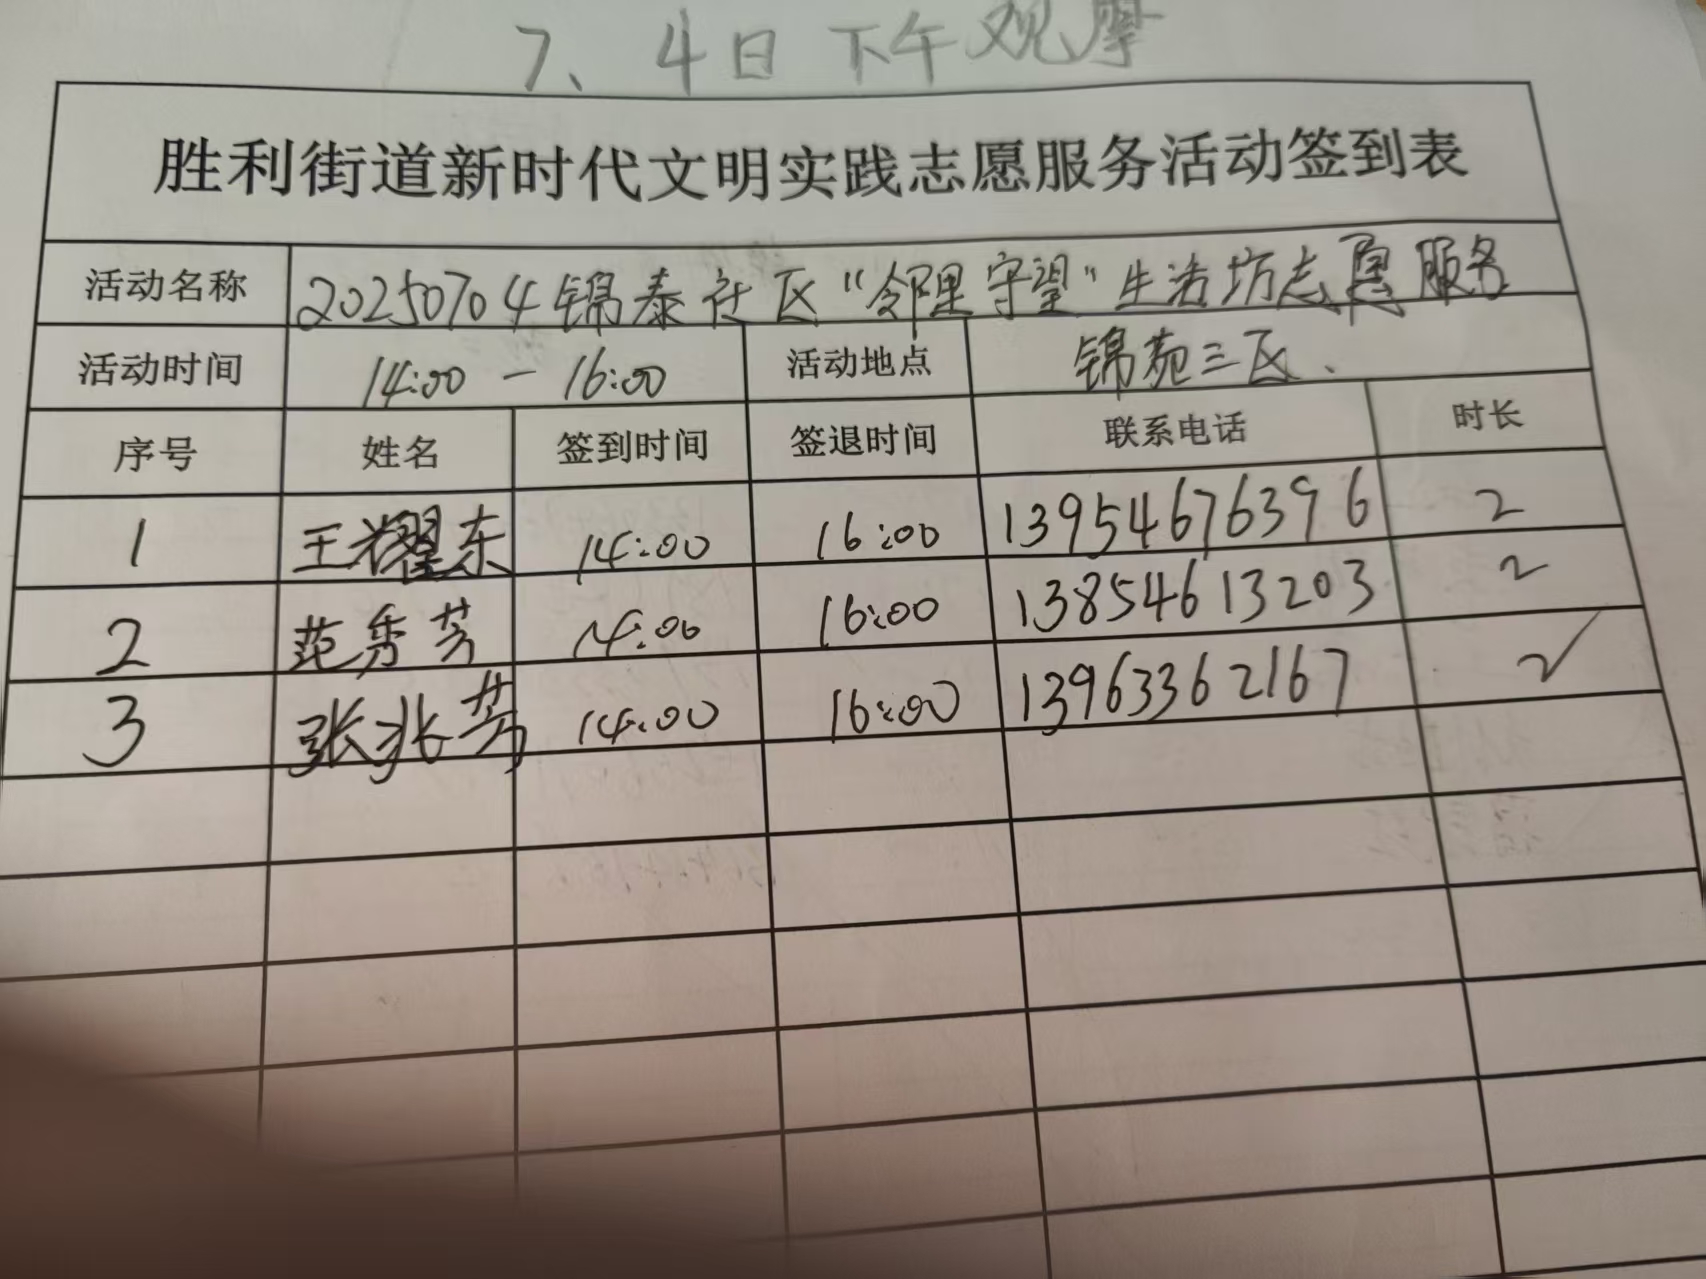 7、4日 下午观摩
胜利街道新时代文明实践志愿服务活动签到表
活动名称 20250704锦泰社区“邻里守望”生活坊志愿服务
活动时间 14:00 — 16:00 活动地点 锦苑三区.
序号 姓名 签到时间 签退时间 联系电话 时长
1 王耀东 14:00 16:00 13954676396 2
2 范秀芳 14:00 16:00 13854613203 2
3 张兆芳 14:00 16:00 13963362167 2